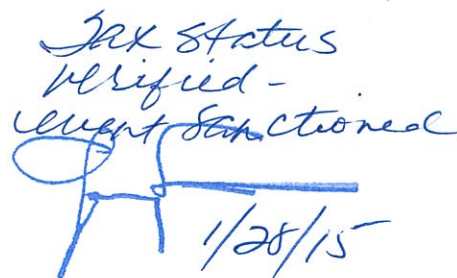 Tax status
verified -
event sanctioned
1/28/15